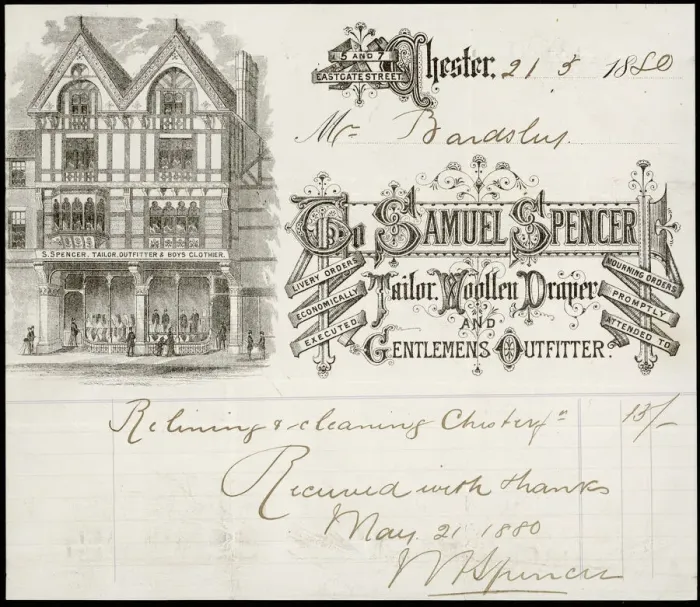 5 AND 7
EASTGATE STREET
Chester, 21 5 1880
Mr Bardsley
S. SPENCER, TAILOR, OUTFITTER & BOYS CLOTHIER.
To SAMUEL SPENCER
LIVERY ORDERS
ECONOMICALLY
EXECUTED
Tailor. Woollen Draper
AND
GENTLEMENS OUTFITTER.
MOURNING ORDERS
PROMPTLY
ATTENDED TO
Relining & cleaning Chesterfn 13/-
Received with thanks
May 21 1880
Spencer